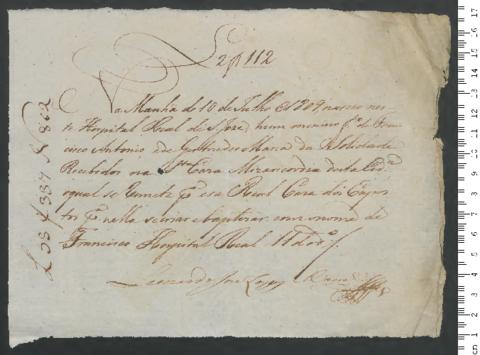 L.º 2 f 112
Na Manhã de 10 de Julho de 1809 nasceo nes-
te Hospital Real de S. José hum menino f.º de Fran-
cisco Antonio e de Gertrudes Maria da Piedade
Recebidos na S.ta Caza Mizericordia desta Cid.e
o qual se remete p.ª essa Real Caza dos Expos-
tos p.ª nella se criar e baptizar com o nome de
Francisco Hospital Real 11 d.o
Leonardo Jose Lopes